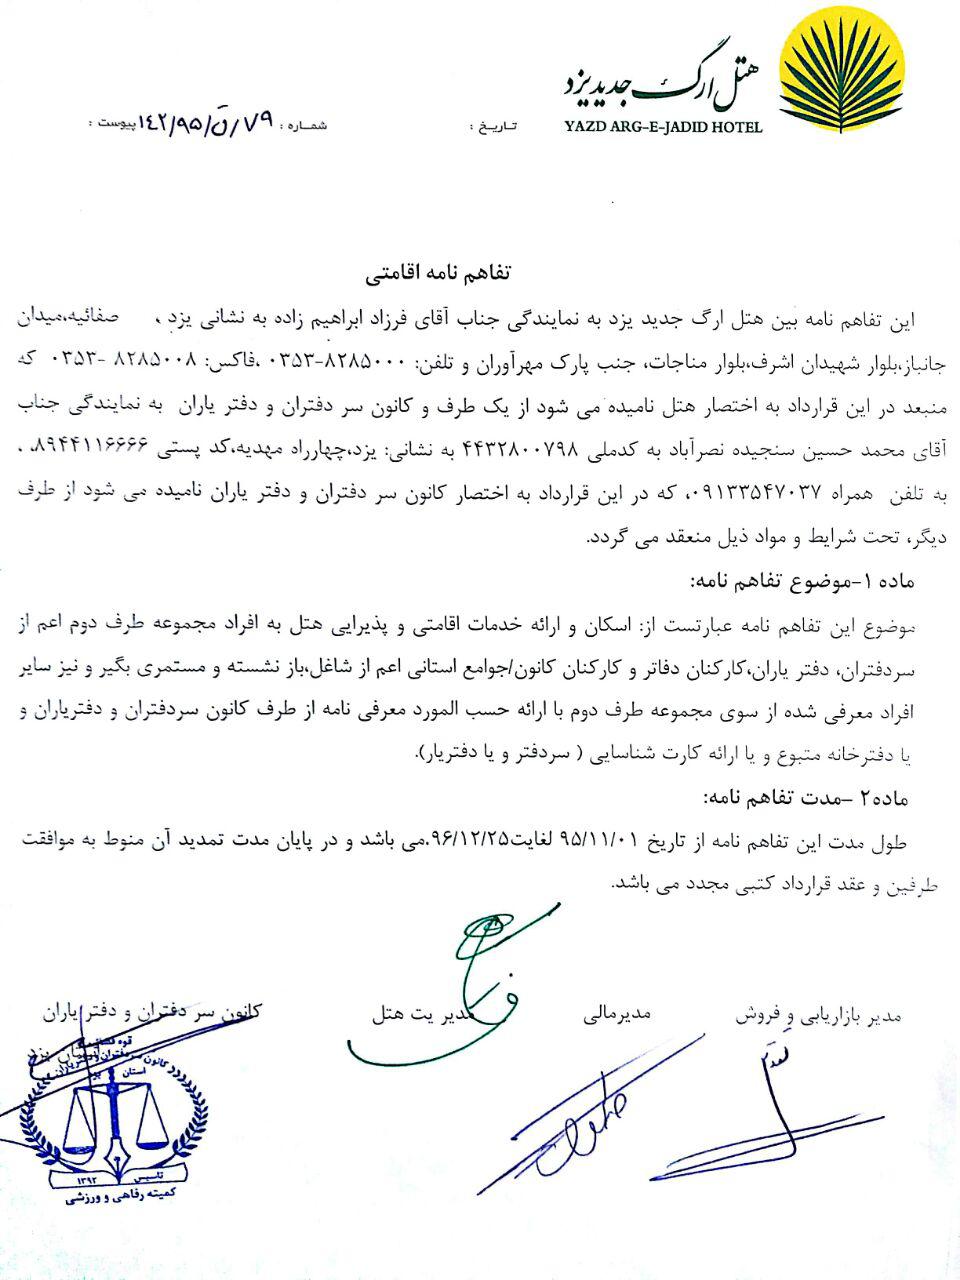 هتل ارگ جدید یزد
YAZD ARG-E-JADID HOTEL
تاریخ :
شماره : ۷۹/ق/۱۴۲/۹۵
پیوست :
تفاهم نامه اقامتی
این تفاهم نامه بین هتل ارگ جدید یزد به نمایندگی جناب آقای فرزاد ابراهیم زاده به نشانی یزد ، صفائیه،میدان
جانباز،بلوار شهیدان اشرف،بلوار مناجات، جنب پارک مهرآوران و تلفن: ۸۲۸۵۰۰۰-۰۳۵۳ ،فاکس: ۸۲۸۵۰۰۸ -۰۳۵۳ که
منبعد در این قرارداد به اختصار هتل نامیده می شود از یک طرف و کانون سر دفتران و دفتر یاران به نمایندگی جناب
آقای محمد حسین سنجیده نصرآباد به کدملی ۴۴۳۲۸۰۰۷۹۸ به نشانی: یزد،چهارراه مهدیه،کد پستی ۸۹۴۴۱۱۶۶۶۶، .
به تلفن همراه ۰۹۱۳۳۵۴۷۰۳۷، که در این قرارداد به اختصار کانون سر دفتران و دفتر یاران نامیده می شود از طرف
دیگر، تحت شرایط و مواد ذیل منعقد می گردد.
ماده ۱-موضوع تفاهم نامه:
موضوع این تفاهم نامه عبارتست از: اسکان و ارائه خدمات اقامتی و پذیرایی هتل به افراد مجموعه طرف دوم اعم از
سردفتران، دفتر یاران،کارکنان دفاتر و کارکنان کانون/جوامع استانی اعم از شاغل،باز نشسته و مستمری بگیر و نیز سایر
افراد معرفی شده از سوی مجموعه طرف دوم با ارائه حسب المورد معرفی نامه از طرف کانون سردفتران و دفتریاران و
یا دفترخانه متبوع و یا ارائه کارت شناسایی ( سردفتر و یا دفتریار).
ماده۲ –مدت تفاهم نامه:
طول مدت این تفاهم نامه از تاریخ ۹۵/۱۱/۰۱ لغایت۹۶/۱۲/۲۵،می باشد و در پایان مدت تمدید آن منوط به موافقت
طرفین و عقد قرارداد کتبی مجدد می باشد.
مدیر بازاریابی و فروش
مدیرمالی
مدیر یت هتل
کانون سر دفتران و دفتر یاران
استان یزد
قوه قضائیه
کانون سردفتران و دفتریاران
استان یزد
تاسیس ۱۳۹۲
کمیته رفاهی و ورزشی